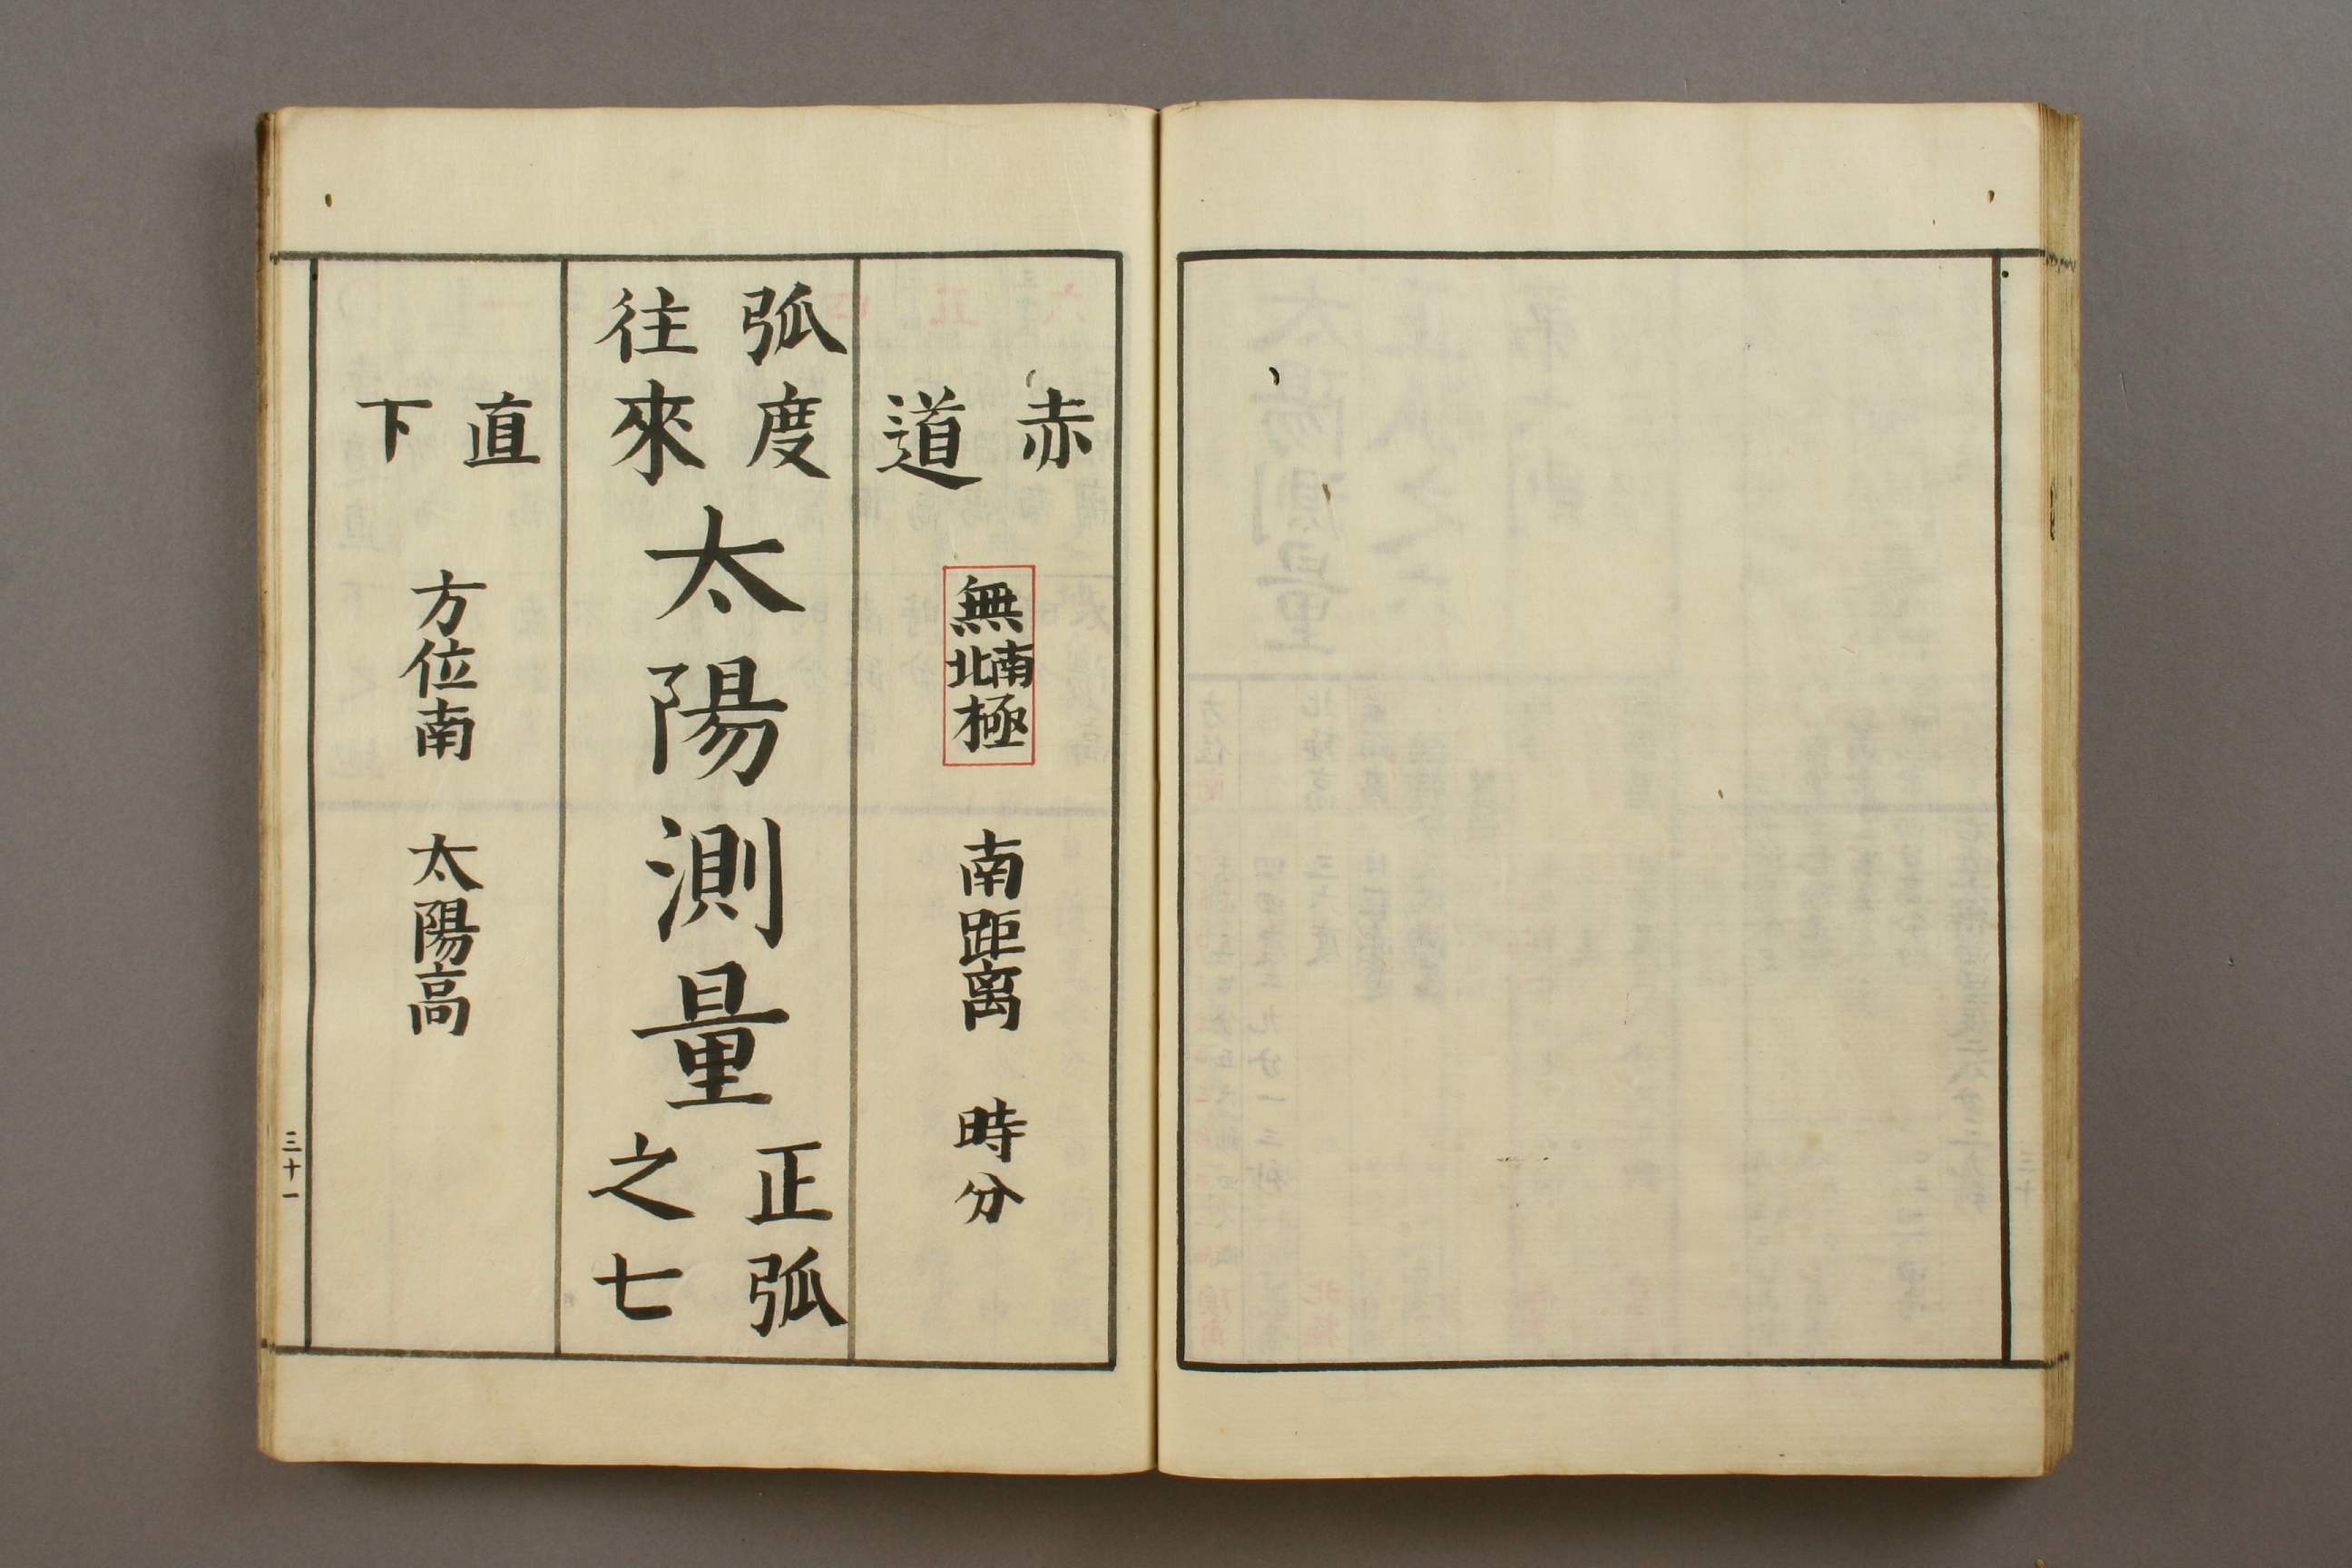 赤道 無南北極 南距離 時分
弧度往來 太陽測量 正弧之七
直下 方位南 太陽高
三十一